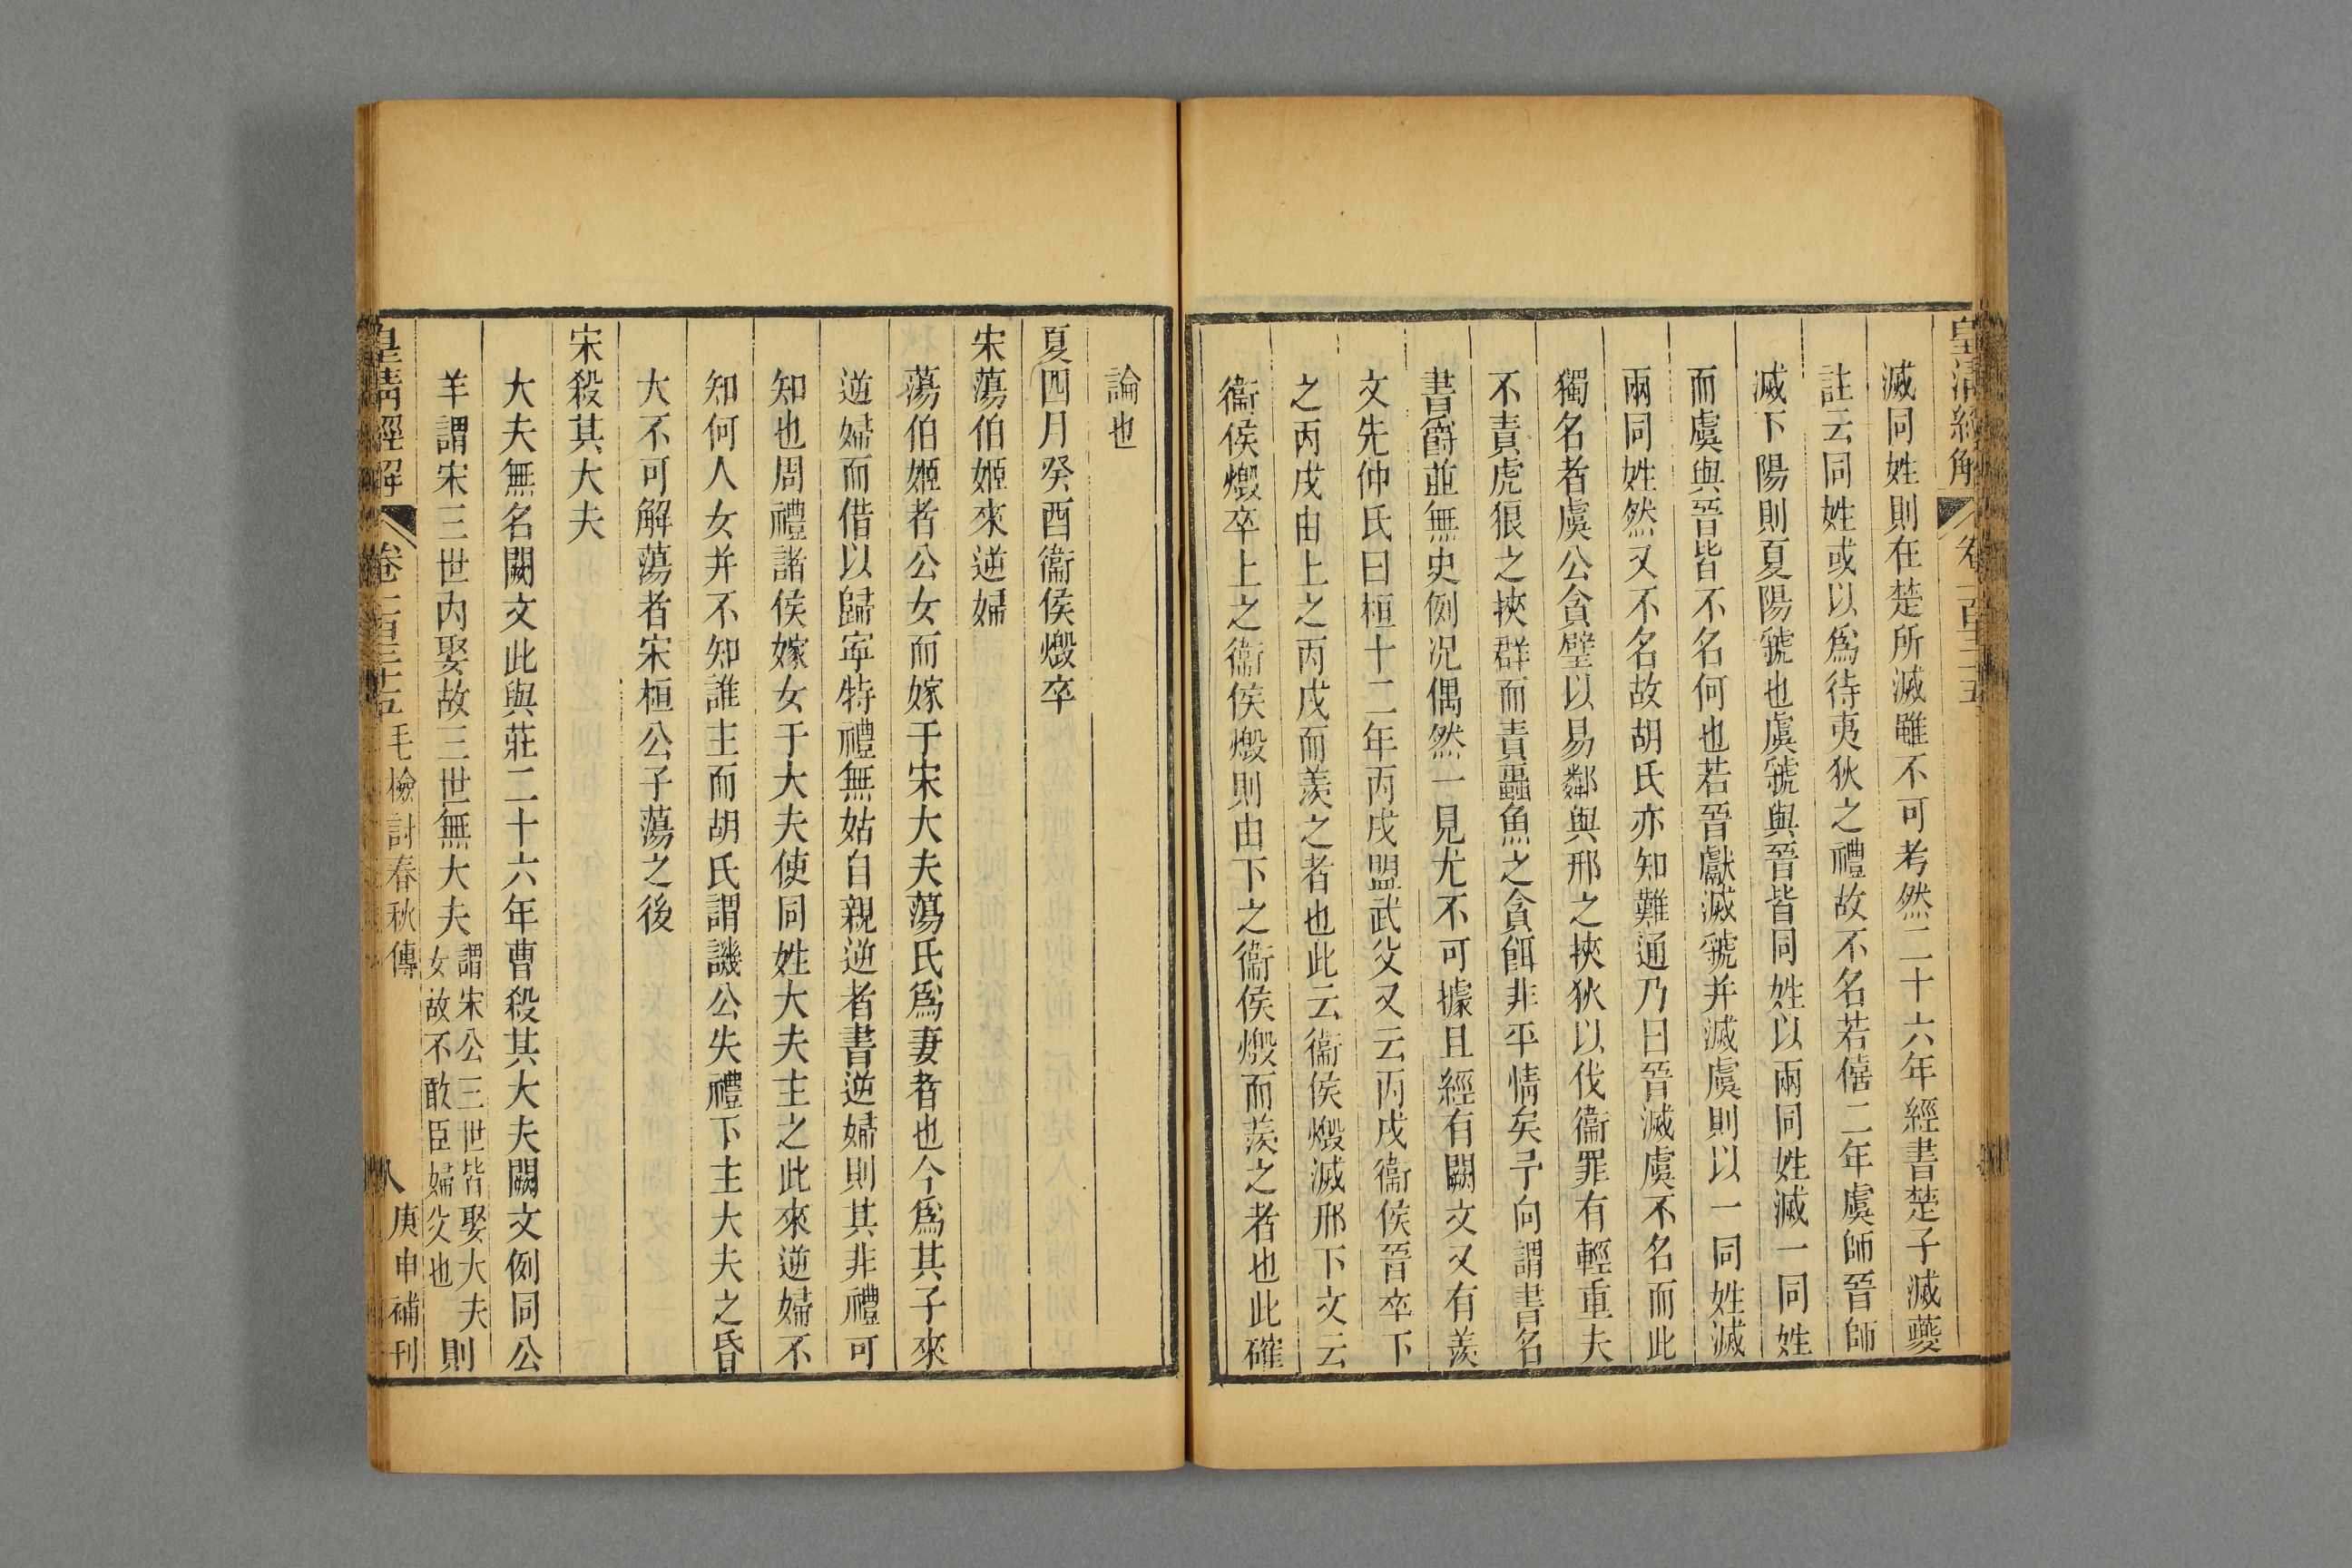 皇清經解 卷一百三十五
滅同姓則在楚所滅雖不可考然二十六年經書楚子滅夔
註云同姓或以爲待夷狄之禮故不名若僖二年虞師晉師
滅下陽則夏陽虢也虞虢與晉皆同姓以兩同姓滅一同姓
而虞與晉皆不名何也若晉獻滅虢并滅虞則以一同姓滅
兩同姓然又不名故胡氏亦知難通乃曰晉滅虞不名而此
獨名者虞公貪璧以易鄰與邢之挾狄以伐衞罪有輕重夫
不責虎狼之挾群而責蠠魚之貪餌非平情矣予向謂書名
書爵並無史例况偶然一見尤不可據且經有闕文又有羨
文先仲氏曰桓十二年丙戌盟武父又云丙戌衞侯晉卒下
之丙戌由上之丙戌而羨之者也此云衞侯燬滅邢下文云
衞侯燬卒上之衞侯燬則由下之衞侯燬而羨之者也此確
論也
夏四月癸酉衞侯燬卒
宋蕩伯姬來逆婦
蕩伯姬者公女而嫁于宋大夫蕩氏爲妻者也今爲其子來
逆婦而借以歸寧特禮無姑自親逆者書逆婦則其非禮可
知也周禮諸侯嫁女于大夫使同姓大夫主之此來逆婦不
知何人女并不知誰主而胡氏謂譏公失禮下主大夫之昏
大不可解蕩者宋桓公子蕩之後
宋殺其大夫
大夫無名闕文此與莊二十六年曹殺其大夫闕文例同公
羊謂宋三世內娶故三世無大夫謂宋公三世皆娶大夫女故不敢臣婦父也則
皇清經解 卷一百三十五 毛檢討春秋傳 八 庚申補刊